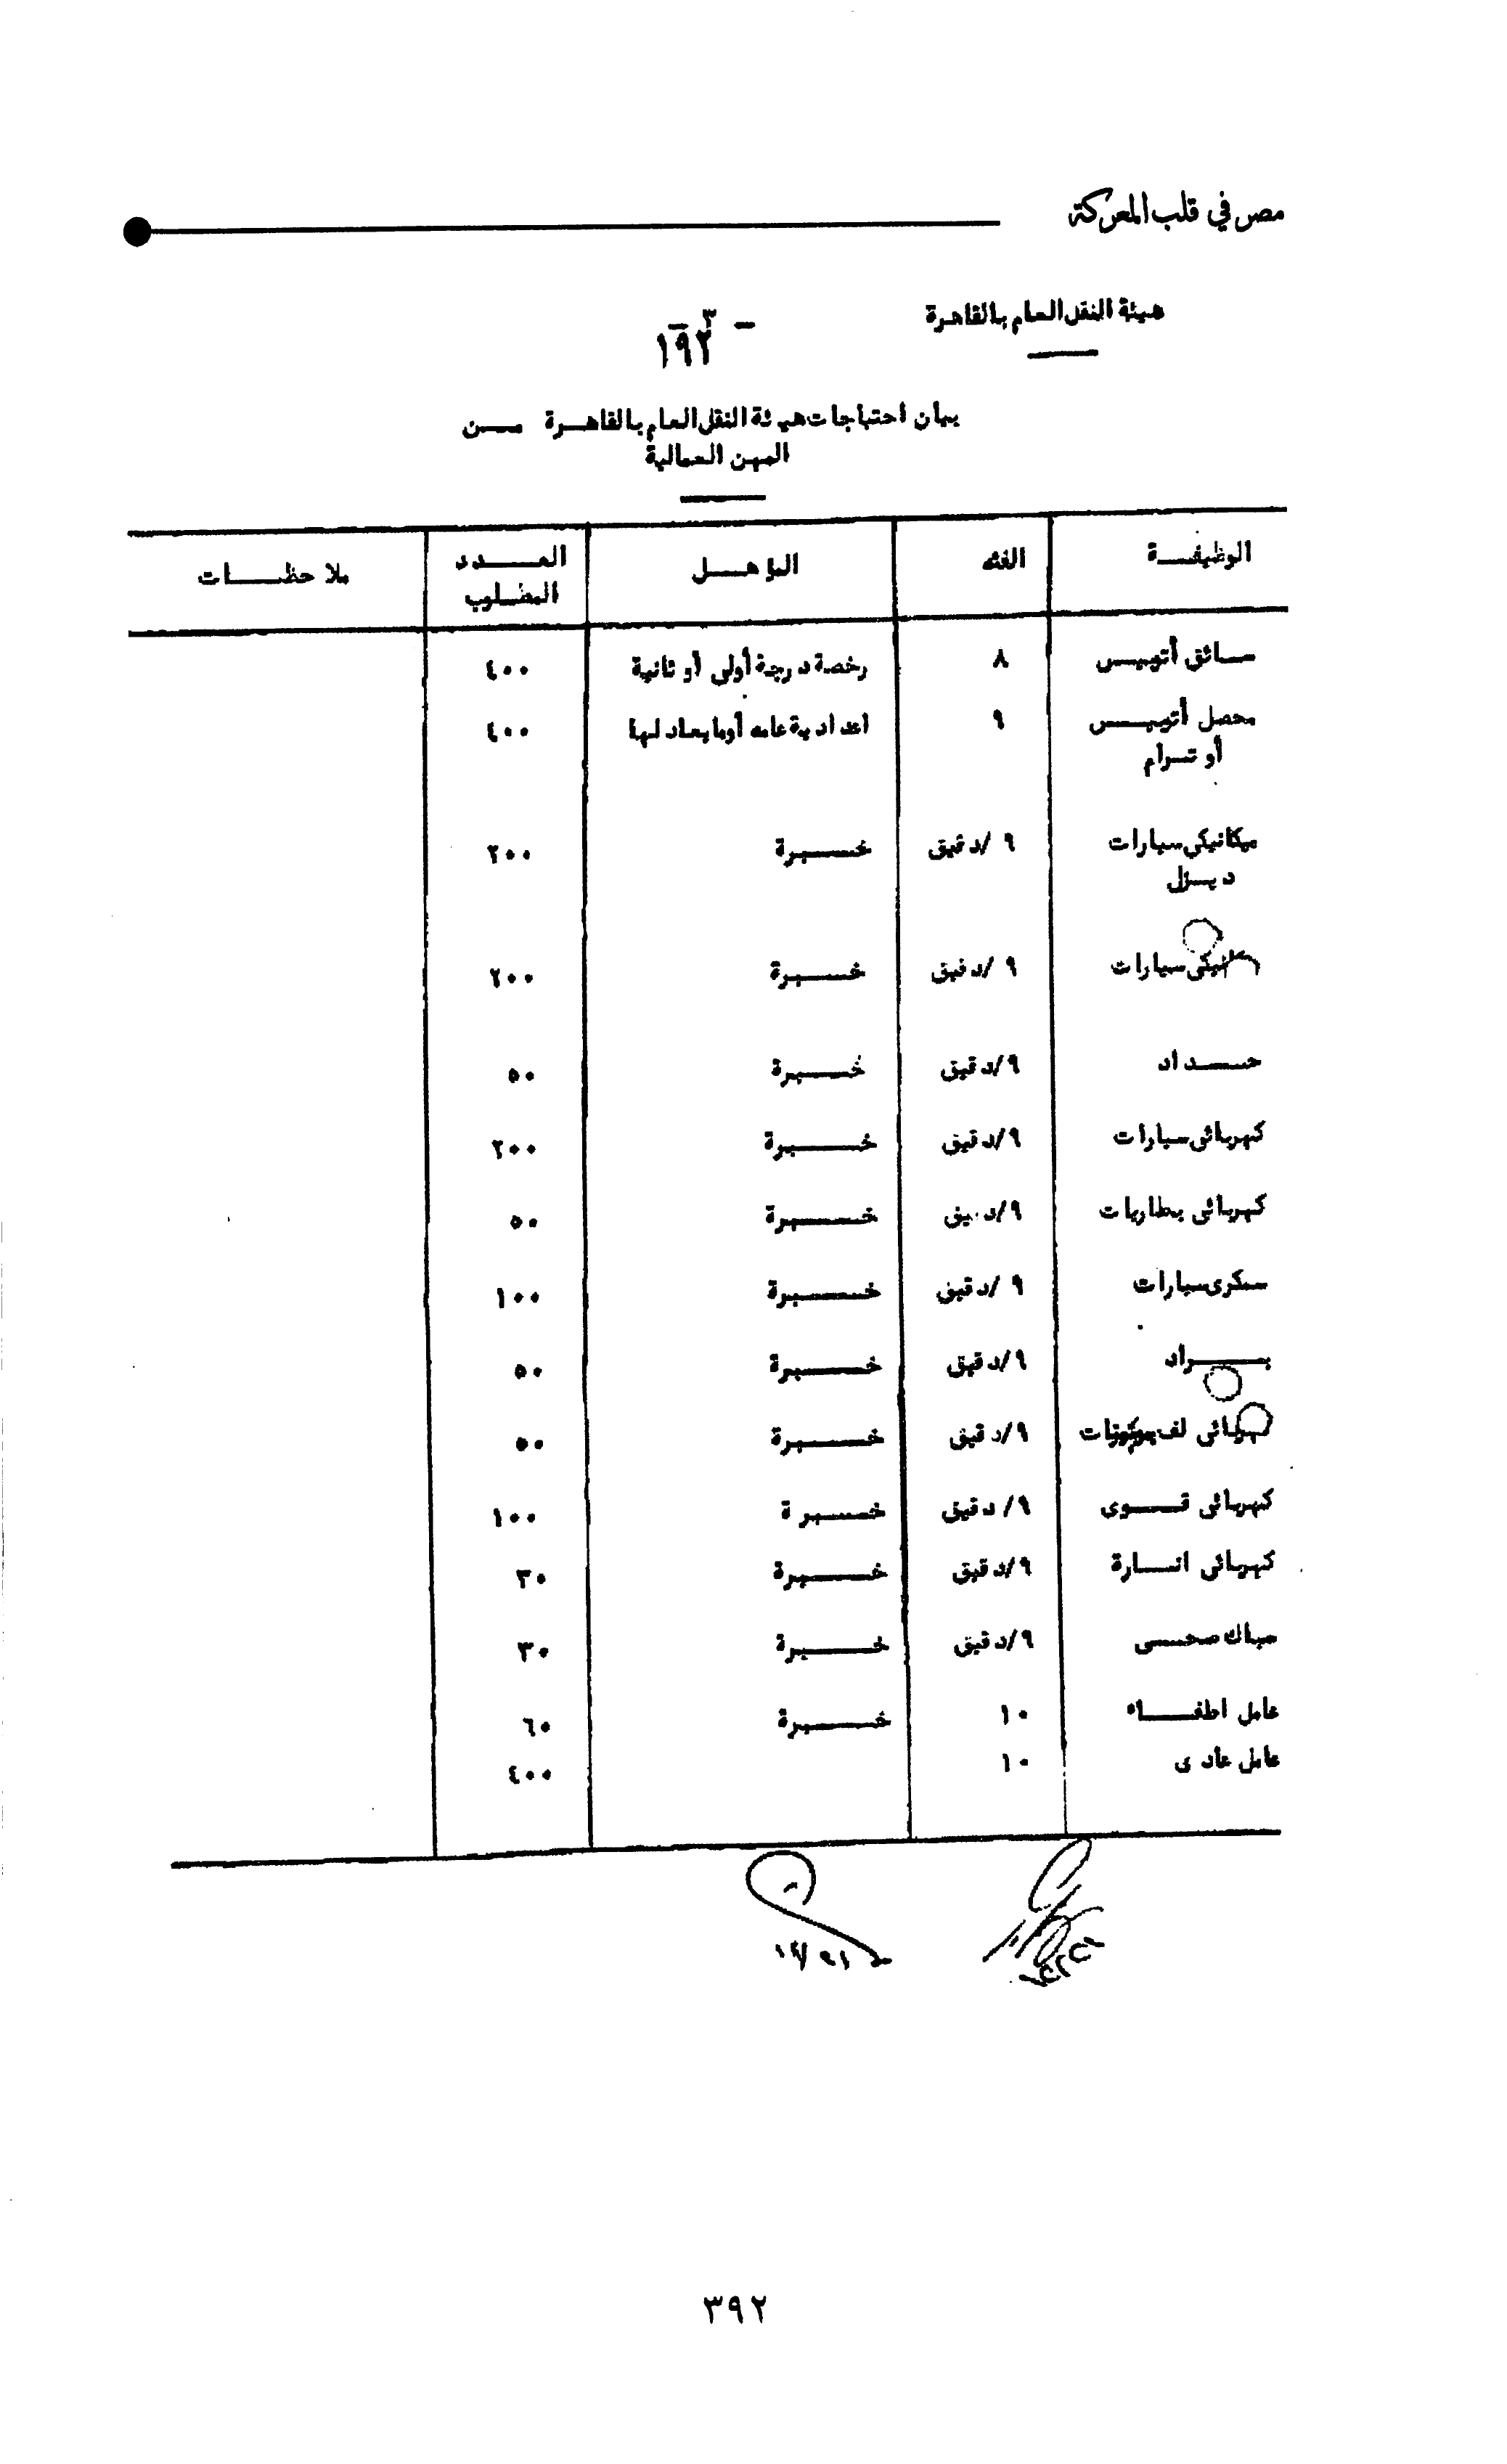 مصر في قلب المعركة
هيئة النقل العام بالقاهرة
- ٣ -
١٩٢
بيان احتياجات هيئة النقل العام بالقاهرة من
المهن العمالية
الوظيفة الفئه المؤهل العدد المطلوب ملاحظات
سائق أتوبيس ٨ رخصة درجة أولى أو ثانية ٤٠٠
محصل أتوبيس ٩ اعدادية عامه أو ما يعادلها ٤٠٠
أو ترام
ميكانيكى سيارات ٩ /دقيق خبرة ٢٠٠
ديزل
ميكانيكى سيارات ٩ /دقيق خبرة ٢٠٠
حداد ٩/دقيق خبرة ٥٠
كهربائى سيارات ٩/دقيق خبرة ٢٠٠
كهربائى بطاريات ٩/دقيق خبرة ٥٠
سمكرى سيارات ٩ /دقيق خبرة ١٠٠
براد ٩/دقيق خبرة ٥٠
كهربائى لف موتورات ٩/دقيق خبرة ٥٠
كهربائى قوى ٩/ دقيق خبرة ١٠٠
كهربائى انارة ٩/دقيق خبرة ٣٠
سباك صحى ٩/دقيق خبرة ٣٠
عامل اطفاء ١٠ خبرة ٦٠
عامل عادى ١٠ ٤٠٠
٣٩٢